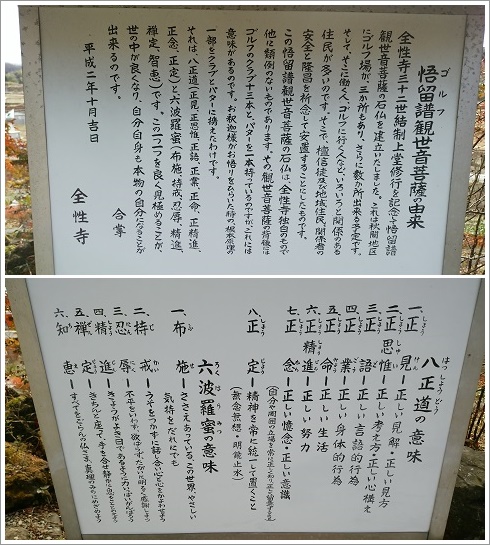 ゴルフ
悟留譜観世音菩薩の由来
全性寺三十二世結制上堂修行を記念し悟留譜
観世音菩薩の石仏を建立いたしました。これは秋間地区
にゴルフ場が、三か所もあり、さらに数か所出来る予定です。
そして、そこに働く人、ゴルフに行く人など、いろいろと関係のある
住民が多いのです。そこで、檀信徒及び地域住民、関係者の
安全と隆昌を祈念して安置することにしたものです。
この悟留譜観世音菩薩の石仏は、全性寺独自のもので
他に類例のないものであります。その、観世音菩薩の背後には
ゴルフのクラブ十三本と、パターを一本持っているのですが、これには
意味があるのです。お釈迦様がお悟りをひらいた時の、根本原理の
一部をクラブとパターに構えたわけです。
それは、八正道(正見、正思惟、正語、正業、正命、正精進、
正念、正定)と六波羅蜜(布施、持戒、忍辱、精進、
禅定、智恵)です。この二つを良く見極めることが、
世の中が良くなり、自分自身も本物の自分になることが
出来るのです。
合掌
平成二年十月吉日
全性寺
はっしょうどう
八正道の意味
一、正見ー正しい見解・正しい見方
二、正思惟ー正しい考え方・正しい心構え
三、正語ー正しい言語的行為
四、正業ー正しい身体的行為
五、正命ー正しい生活
六、正精進ー正しい努力
七、正念ー正しい憶念・正しい意識
(自分や周囲の立場を常に正しく
八、正定ー精神を常に統一して置くこと
(無念無想・明鏡止水)
ろくはらみつ
六波羅蜜の意味
一、布施ーささえあっている、この世界、やさしい
気持をだれにでも
二、持戒ーうそをつかずに話し合い心と心をかよわせよう
三、忍辱ー不平をいわず
四、精進ーきょうがよき日であるように
五、禅定ーきちんと座って、手を合せ静かに息をととのえよう
六、知恵ーすべてをてらす仏さま、真理のみちにめざめよう